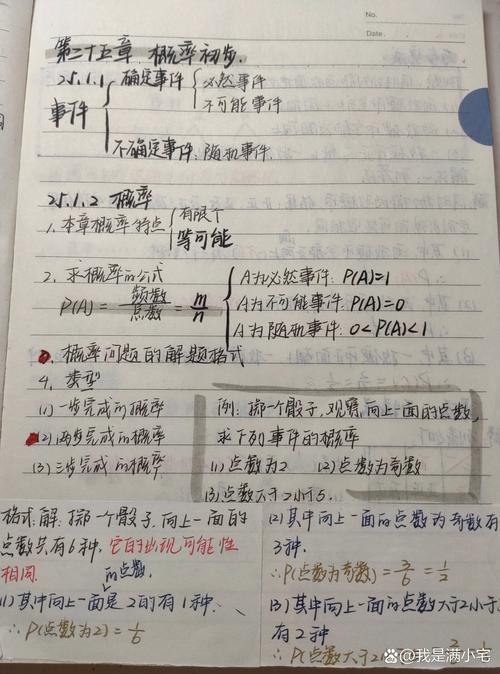 No.
Date.
第二十五章 概率初步.
25.1.1 确定事件 必然事件
不可能事件
事件
不确定事件: 随机事件.
25.1.2 概率
1. 本章概率特点 有限个
等可能
2. 求概率的公式
P(A) = 频数/总数 = m/n
A为必然事件: P(A)=1
A为不可能事件: P(A)=0
A为随机事件: 0<P(A)<1
概率问题的解题格式
4. 类型
(1) 一步完成的概率
(2) 两步完成的概率
(3) 三步完成的概率
例: 掷一个骰子, 观察向上一面的点数,
求下列事件的概率
(1) 点数为2 (2) 点数为奇数
(3) 点数大于2小于5.
格式: 解: 掷一个骰子, 向上一面的
点数共有6种, 它的出现可能性
相同.
的点数.
(1) 其中向上一面是2的有1种.
∴ P(点数为2) = 1/6
(2) 其中向上一面的点数为奇数有
3种.
∴ P(点数为奇数) = 3/6 = 1/2
(3) 其中向上一面的点数大于2小于
有2种
∴ P(点数大于2
@我是满小宅